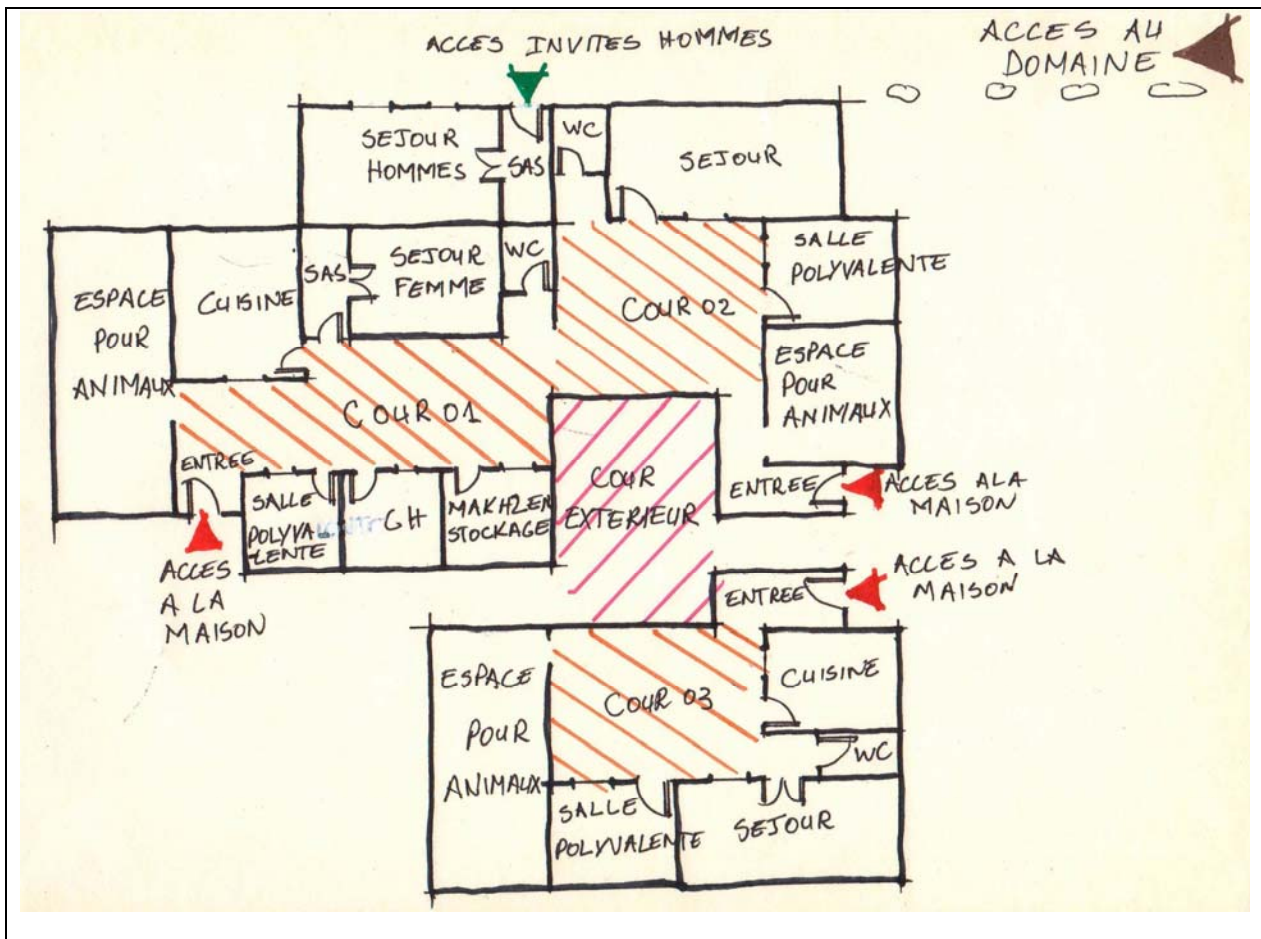 ACCES INVITES HOMMES
ACCES AU
DOMAINE
SEJOUR
HOMMES
SAS
WC
SEJOUR
ESPACE
POUR
ANIMAUX
CUISINE
SAS
SEJOUR
FEMME
WC
COUR 02
SALLE
POLYVALENTE
ESPACE
POUR
ANIMAUX
COUR 01
ENTREE
SALLE
POLYVA
LENTE
CH
MAKHZEN
STOCKAGE
COUR
EXTERIEUR
ENTREE
ACCES ALA
MAISON
ACCES
A LA
MAISON
ENTREE
ACCES A LA
MAISON
ESPACE
POUR
ANIMAUX
COUR 03
CUISINE
WC
SALLE
POLYVALENTE
SEJOUR